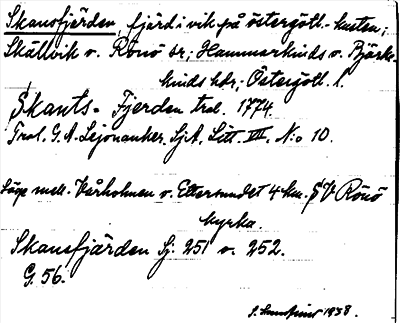 Skansfjärden, fjärd i vik på östergötl.-kusten;
Skällvik o. Rönö sr; Hammarkinds o. Björke-
kinds hdr, Östergötl. l.
Skants-Fjerden trol. 1774.
Trol. G. A. Lejonanker. Sjk. Litt. VII, N:o 10.
Läge mell. Kårholmen o. Ettersundet 4 km. S V Rönö
kyrka.
Skansfjärden Sj. 251 o. 252.
G. 56.
1938.